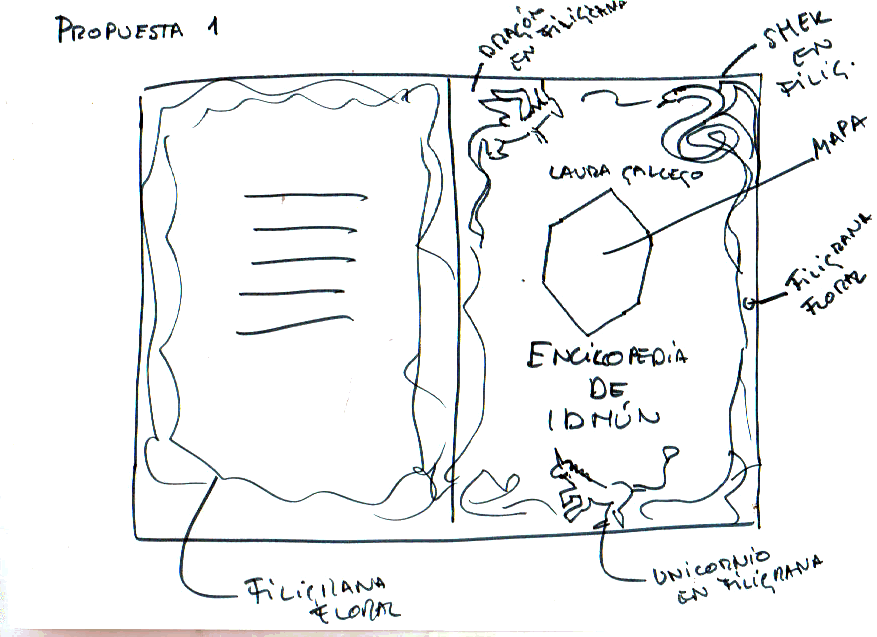 PROPUESTA 1
DRAGÓN
EN FILIGRANA
SHEK
EN
FILIG.
MAPA
LAURA GALLEGO
FILIGRANA
FLORAL
ENCICOPEDIA
DE
IDHÚN
UNICORNIO
EN FILIGRANA
FILIGRANA
FLORAL